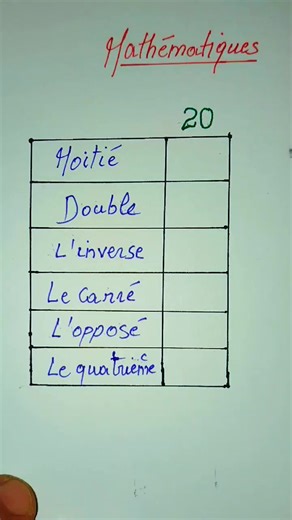 Mathématiques
20
Moitié
Double
L'inverse
Le Carré
L'opposé
Le quatrième